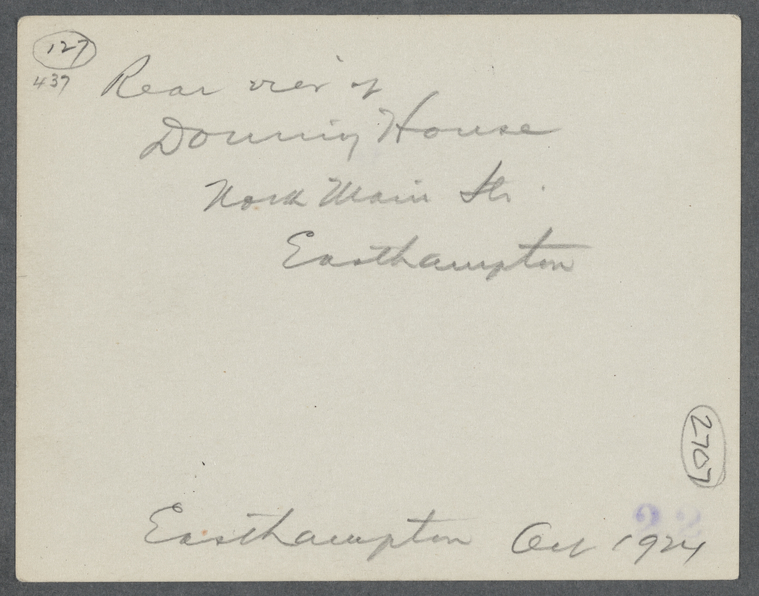 127
437
Rear view of
House
North Main Str.
Easthampton
2707
22
Easthampton Oct 1924